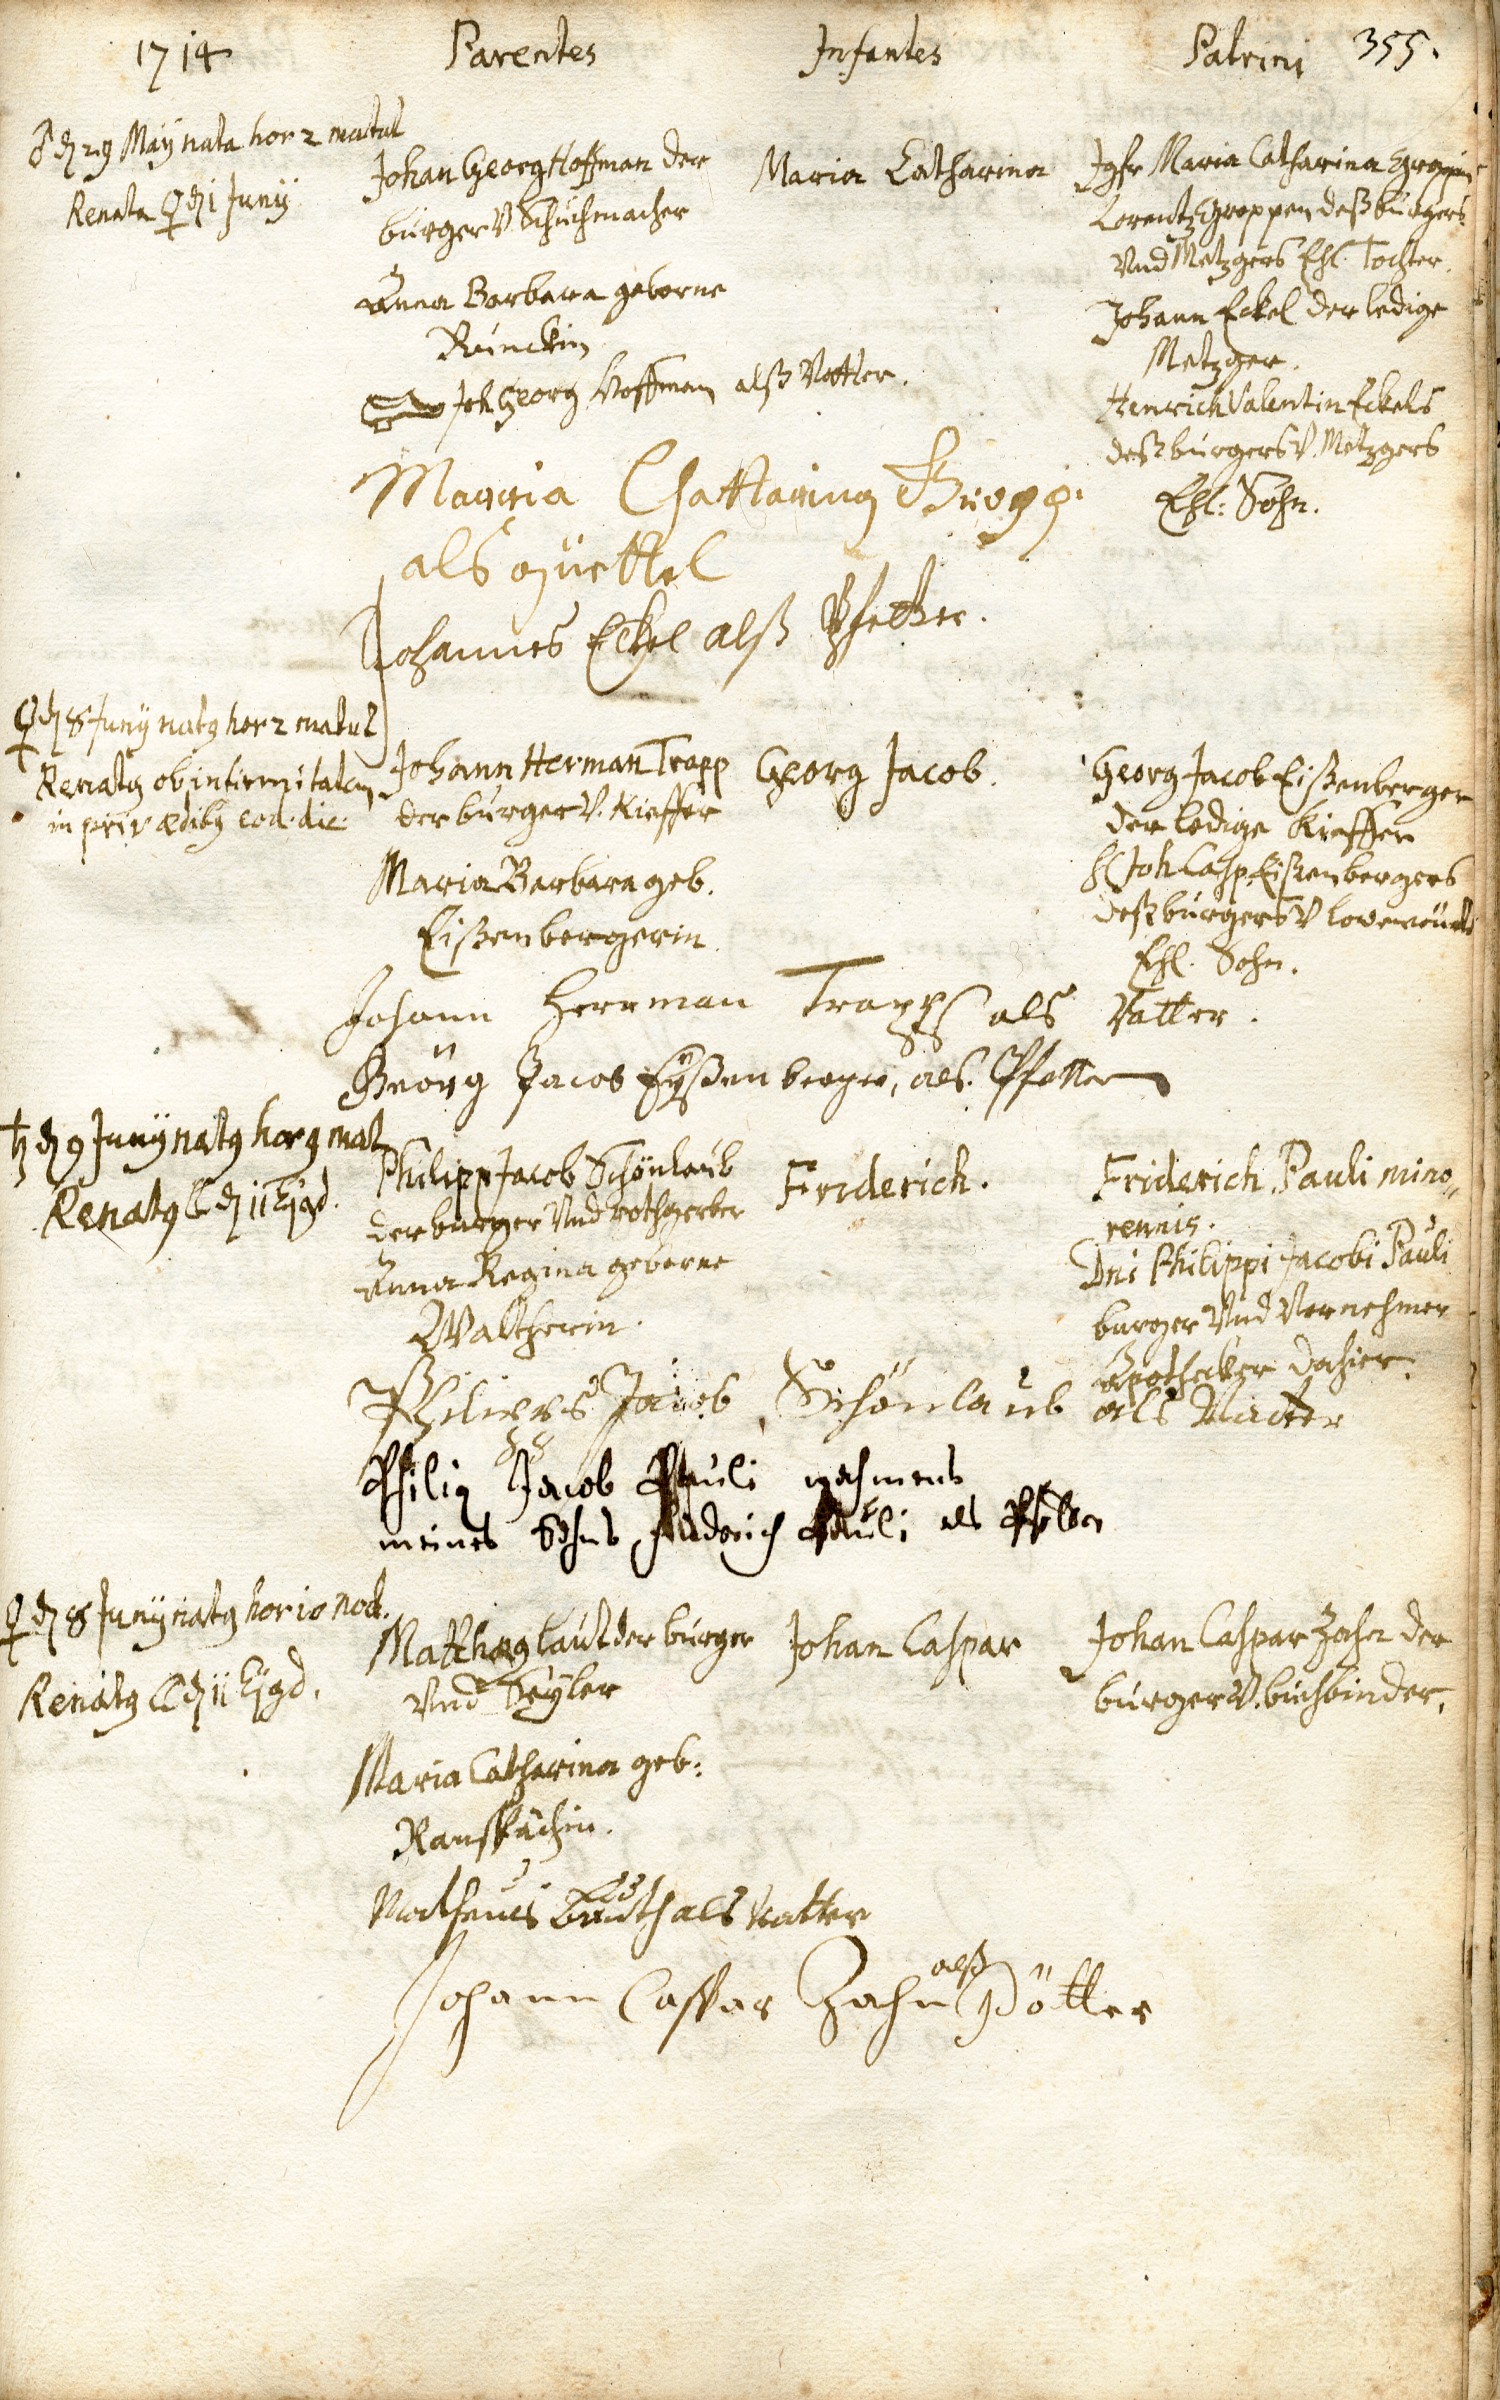 1714 Parentes Infantes Patrini 355.
♂ d 29 Maij nata hor 2 matut
Renata ♀ d 1 Junij
Johan Georg Hoffman der
burger V. Schuchmacher
Anna Barbara geborne
Rünckin
Joh Georg Hoffman alß Vatter.
Maria Catharina
Jgfr Maria Catharina
Lorentz Groppen deß burgers
Vnd Metzgers Ehl. Tochter.
Johann Eckel der ledige
Metzger.
Henrich Valentin Eckels
deß burgers V. Metzgers
Ehl: Sohn.
Marria Chattarina
als
Johannes Eckel alß Pfetter.
♀ d 8 Junij natg hor 2 matut
Renatg ob infirmitatem
in priv ædibg eod. die.
Johann Herman Trapp
der burger V. Kieffer
Maria Barbara geb.
Eißenbergerin
Georg Jacob.
Georg Jacob Eißenberger
der ledige Kieffer
H Joh Casp Eißenbergers
deß burgers V
Ehl. Sohn.
Johann Herrman Trapp als Vatter.
Geörg Jacob Eÿßenberger, als. Pfetter
♄ d 9 Junij natg hor 9 mat
Renatg ☾ d 11 Ejgd.
Philipp Jacob Schönlaub
der burger Vnd rothgerber
Anna Regina geborne
Waltherin.
Friderich.
Friderich Pauli mino„
rennis.
Dni Philippi Jacobi Pauli
burger Vnd Vornehmer
Apotheker dahier.
Jacob Schönlaub als Vatter
Philip Jacob Pauli nahmens
meines Sohns Friderich Pauli als Pfetter
♀ d 8 Junij natg hor 10 noct.
Renatg ☾ d 11 Ejgd.
Matthæg Lault der burger
Vnd Seyler
Maria Catharina geb:
Ranspächin.
Johan Caspar
Johan Caspar Zahn der
burger V. buchbinder.
Matheus Lauth als Vatter
Johann Caspar Zahn alß Pötter